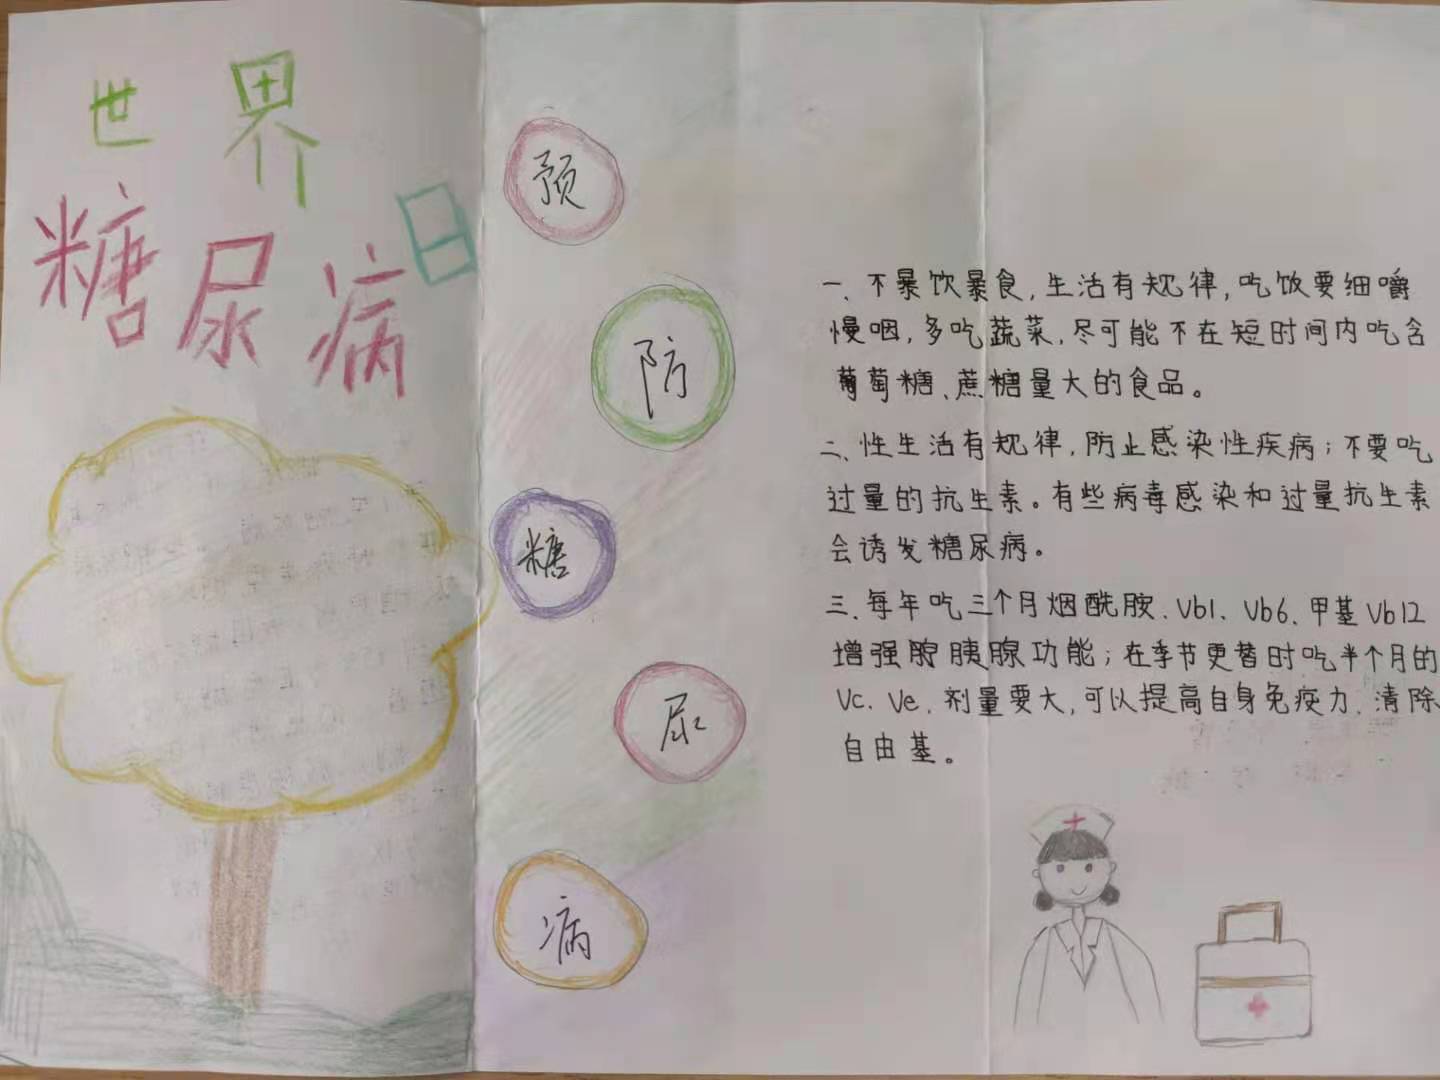 世界
糖尿病日
预
防
糖
尿
病
一、不暴饮暴食，生活有规律，吃饭要细嚼
慢咽，多吃蔬菜，尽可能不在短时间内吃含
葡萄糖、蔗糖量大的食品。
二、性生活有规律，防止感染性疾病；不要吃
过量的抗生素。有些病毒感染和过量抗生素
会诱发糖尿病。
三、每年吃三个月烟酰胺、Vb1、Vb6、甲基Vb12
增强腚胰腺功能；在季节更替时吃半个月的
Vc、Ve，剂量要大，可以提高自身免疫力、清除
自由基。